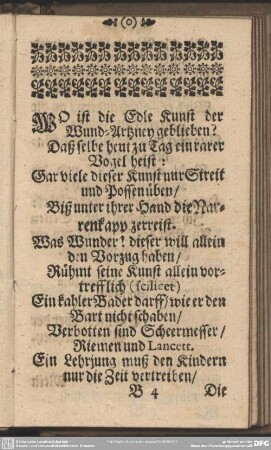 (o)
WO ist die Edle Kunst der
Wund-Artzney geblieben?
Daß selbe heut zu Tag ein rarer
Vogel heist:
Gar viele dieser Kunst nur Streit
und Possen üben/
Biß unter ihrer Hand die Nar-
renkapp zerreist.
Was Wunder! dieser will allein
den Vorzug haben/
Rühmt seine Kunst allein vor-
trefflich (scilicet)
Ein kahler Bader darff/ wie er den
Bart nicht schaben/
Verbotten sind Scheermesser/
Riemen und Lancett.
Ein Lehrjung muß den Kindern
nur die Zeit vertreiben/
B 4 Die